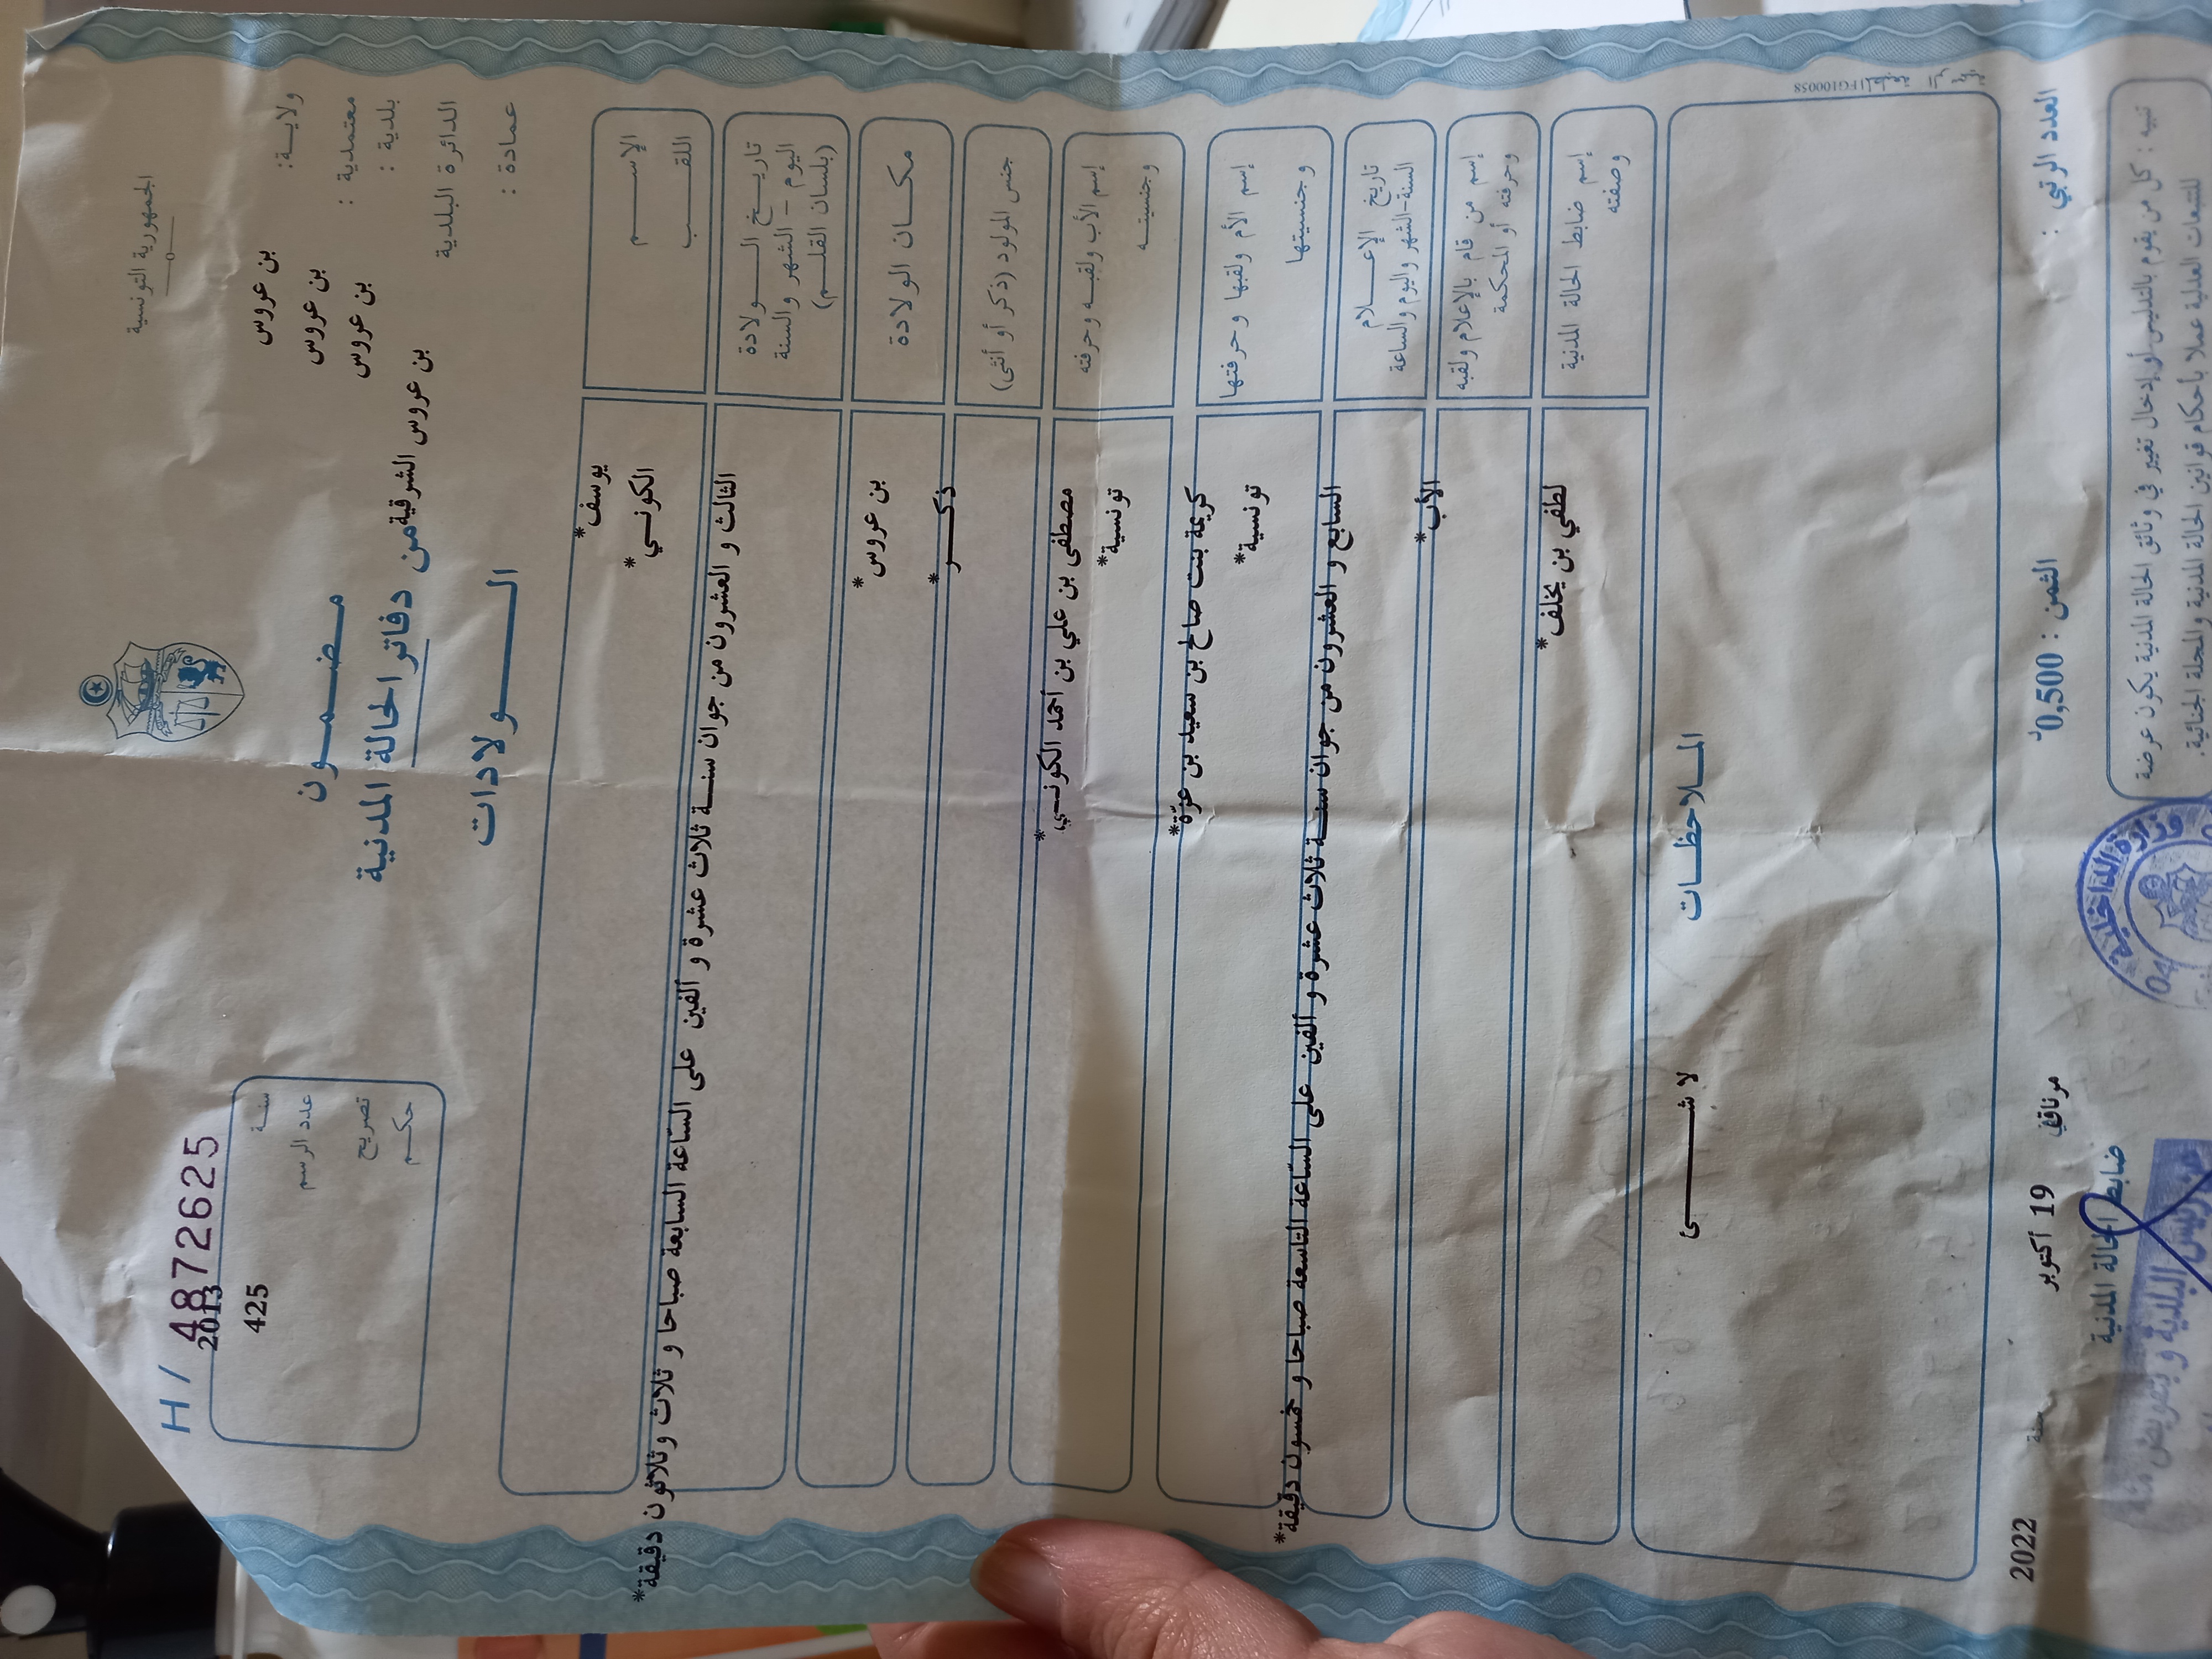 الجمهورية التونسية
H / 4872625
ولايـة: بن عروس
معتمدية : بن عروس
بلدية : بن عروس
الدائرة البلدية بن عروس الشرقية
عمادة :
سنـة 2013
عدد الرسم 425
تصريح
حكـم
مضمـون
من دفاتر الحالة المدنية
الـولادات
الإسـم يوسف*
اللقـب الكونـي*
تاريـخ الـولادة
اليوم - الشهر والسنة
(بلسان القلـم)
الثالث و العشرون من جوان سنـة ثلاث عشرة و ألفين على السّاعة السابعة صباحا و ثلاث وثلاثون دقيقة*
مكـان الولادة بن عروس*
جنس المولود (ذكر أو أنثى) ذكـر*
إسم الأب ولقبـه وحرفته مصطفى بن علي بن أحمد الكونـي*
وجنسيتـه تونسية*
إسم الأم ولقبها وحرفتها كريمة بنت صالح بن سعيد بن عزّة*
وجنسيتها تونسية*
تاريخ الإعـلام
السنة-الشهر واليوم والساعة
السابع و العشرون من جوان سنـة ثلاث عشرة و ألفين على السّاعة التاسعة صباحا و خمسون دقيقة*
إسم من قام بالإعلام ولقبه
وحرفته أو المحكمة
الأب*
إسم ضابط الحالة المدنية
وصفته
لطفي بن يخلف*
الملاحظـات
لا شـئ
FG100058 المطبعة الرسمية
العدد الرتبي :
الثمن : 0,500د
مورناق في 19 أكتوبر سنة 2022
ضابط الحالة المدنية
تنبيه : كل من يقوم بالتدليس أو إدخال تغيير في وثائق الحالة المدنية يكون عرضة
للتتبعات العدلية عملا بأحكام قوانين الحالة المدنية والمجلة الجنائية.
وزارة الداخلية
04
رئيس البلدية وبتفويض منه